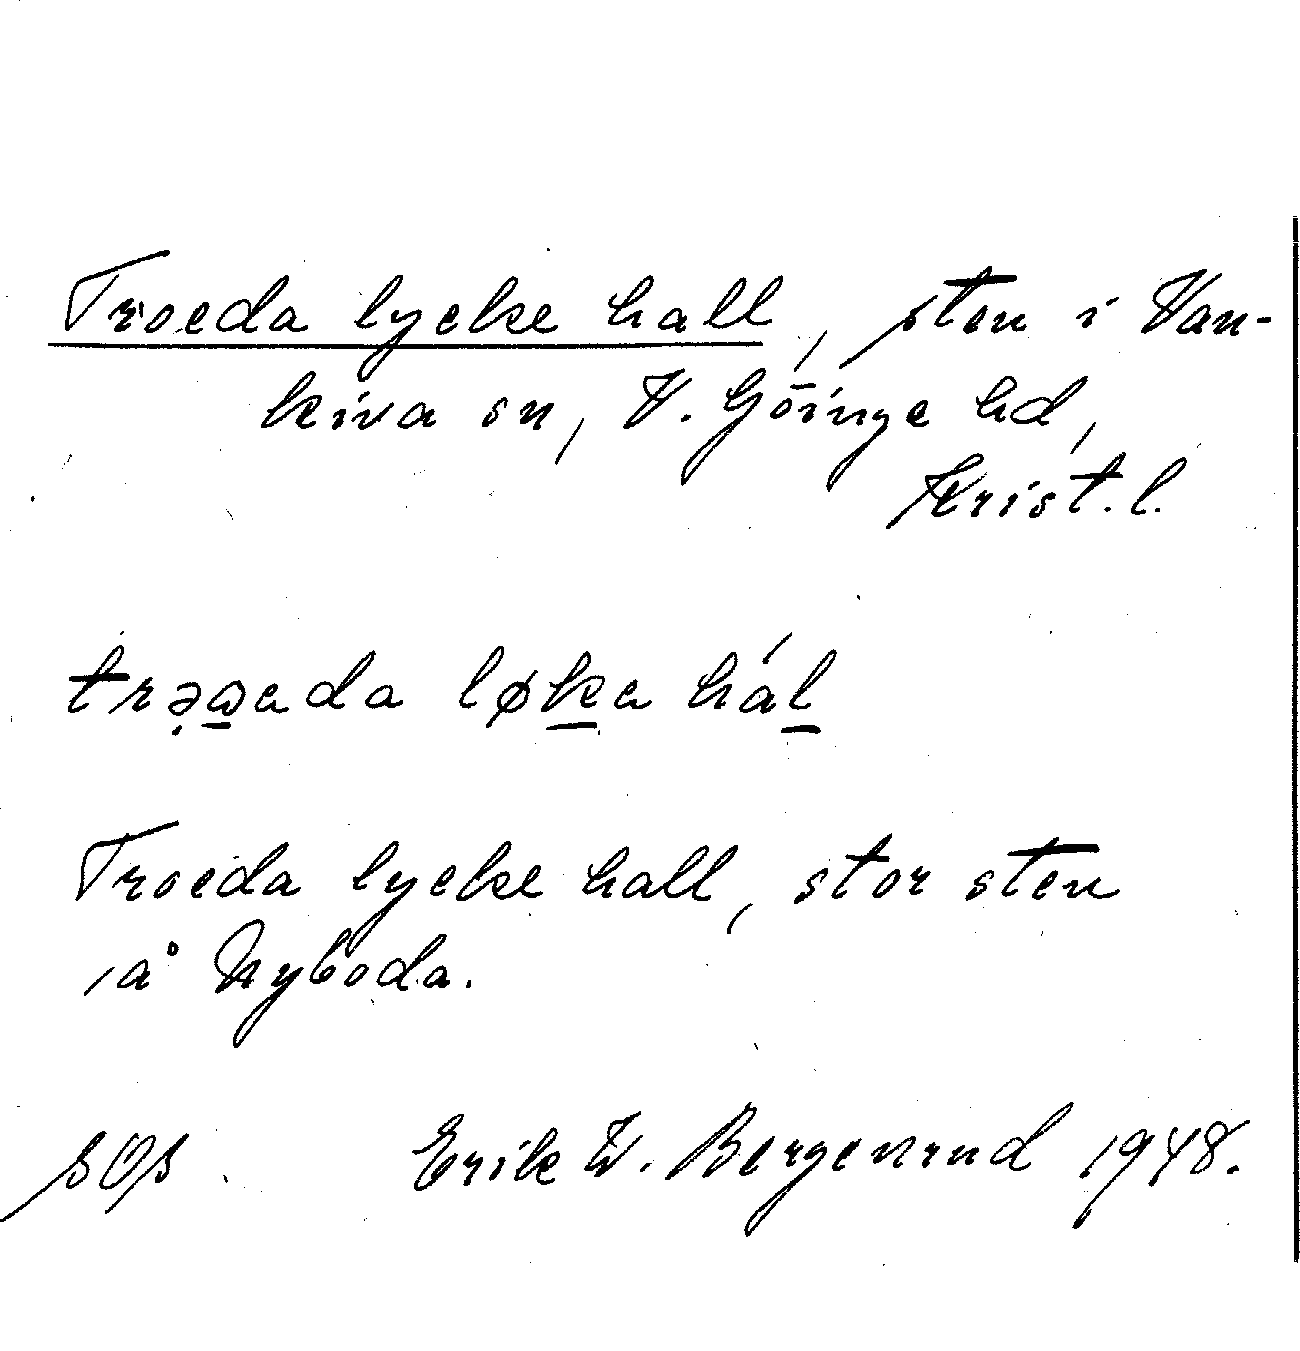 Troeda lycke hall, sten i Van-
kiva sn, V. Göinge hd,
Krist. l.
trə̣ω̲ada løk̲a hál̲
Troeda lycke hall, stor sten
å Nyboda.
SOS. Erik W. Bergenrud 1948.